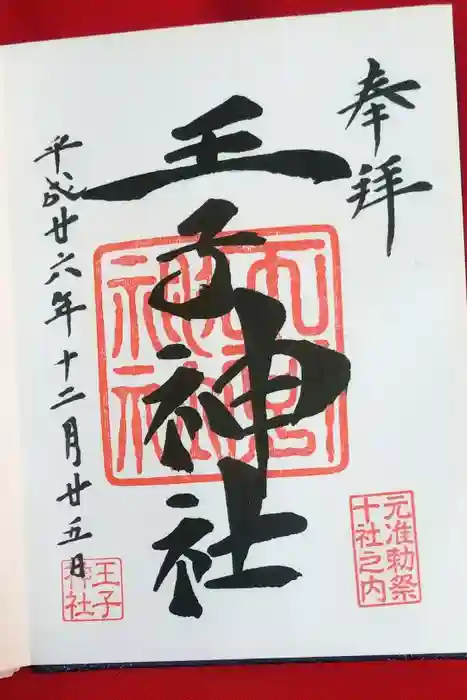 奉拝
元准勅祭
十社之内
王子神社
平成廿六年十二月廿五日
王子
神社